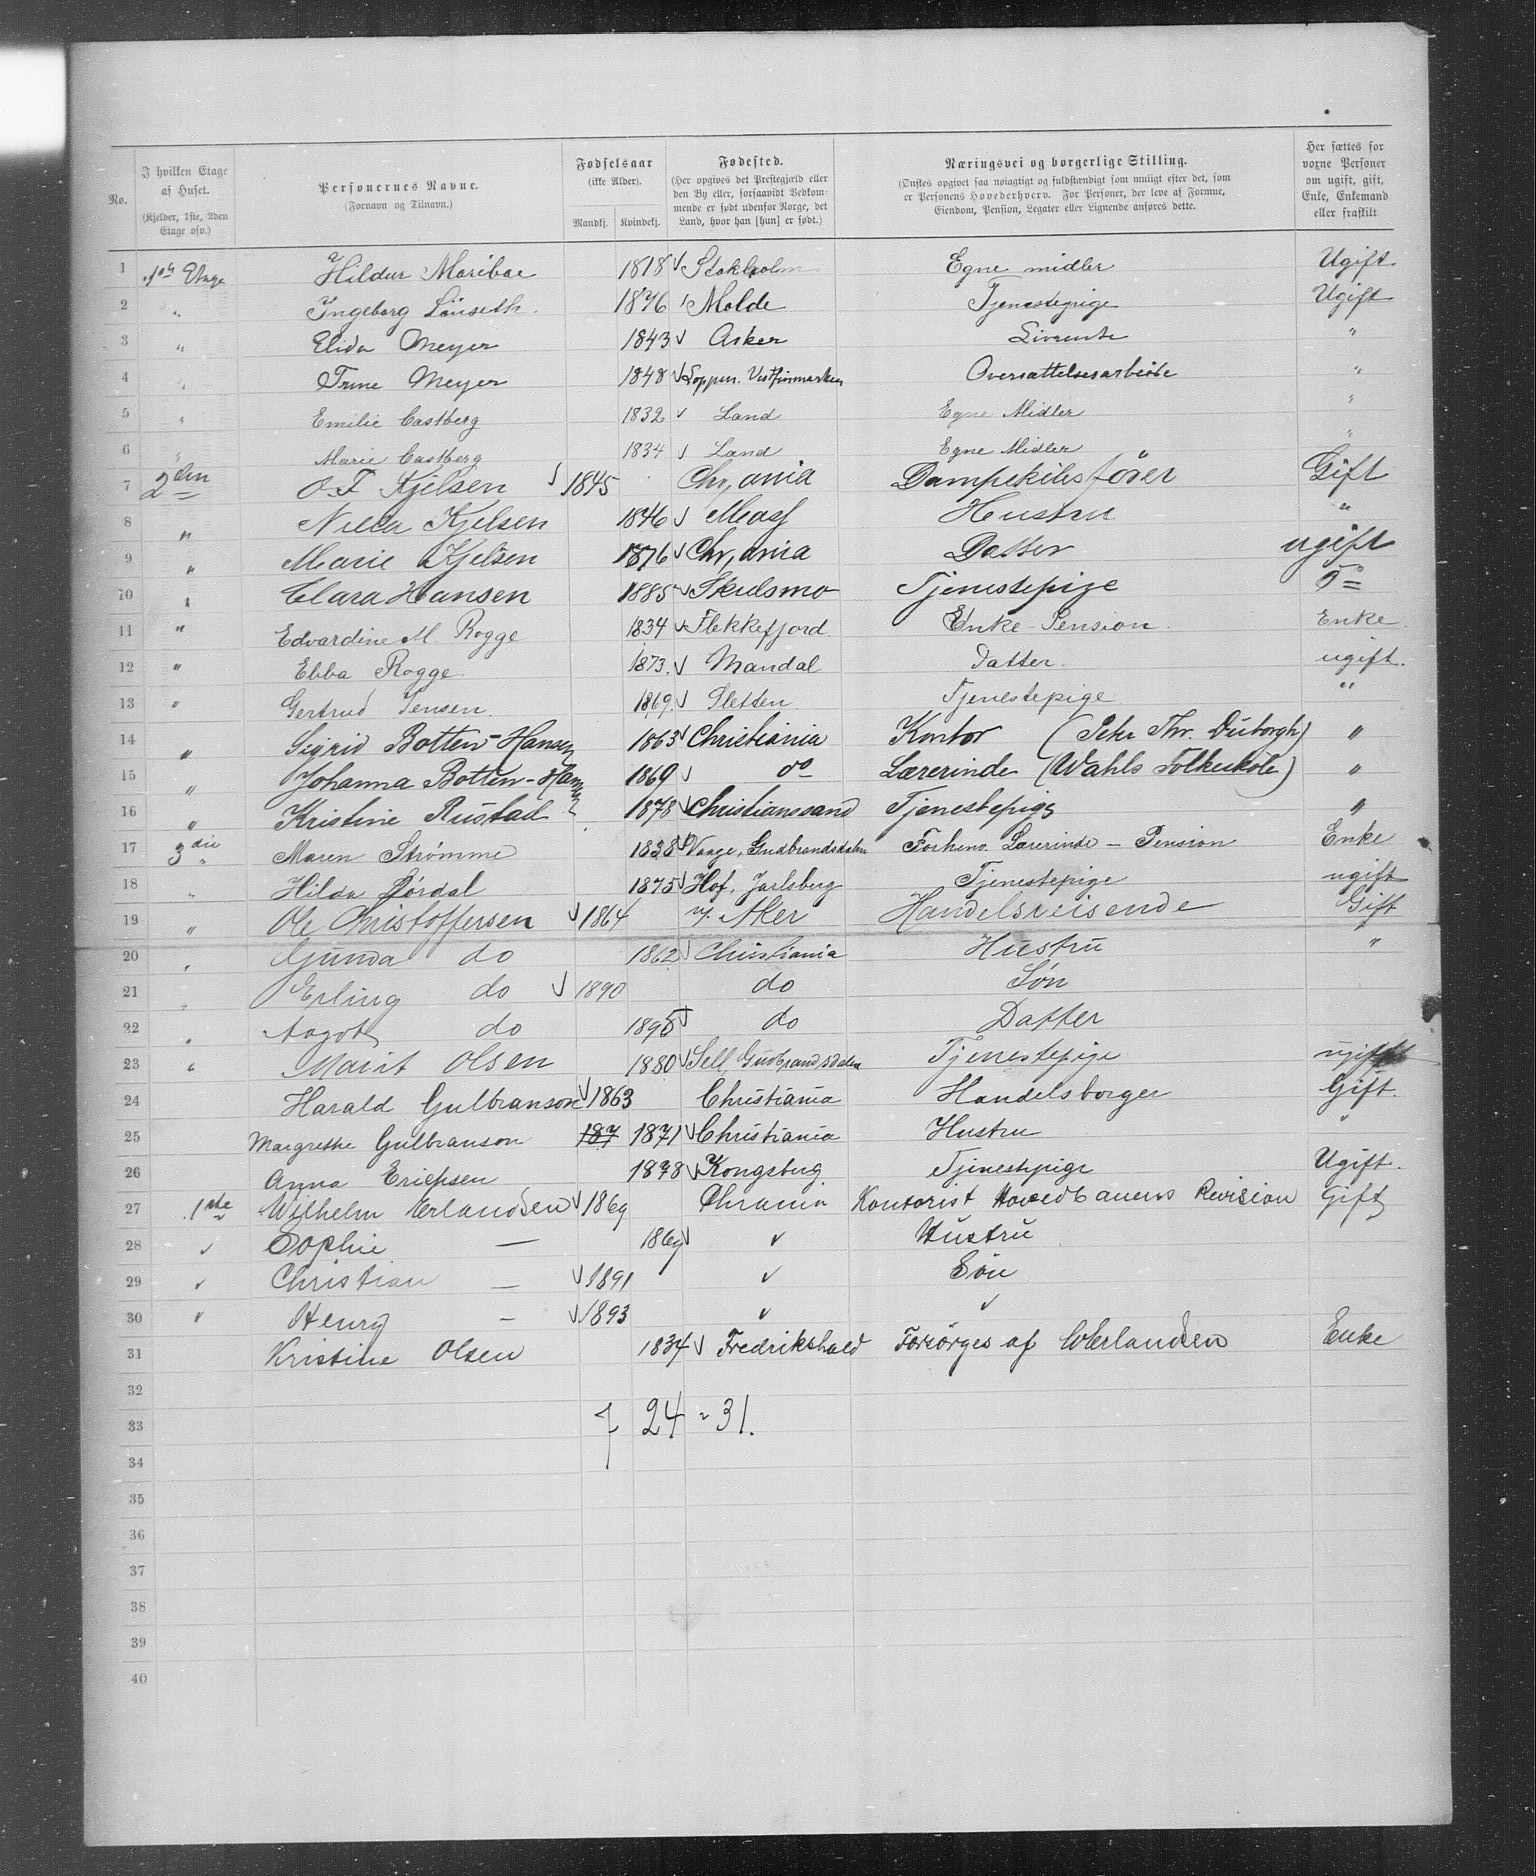 No.
I hvilken Etage af Huset. (Kjelder, 1ste, 2den Etage osv.)
Personernes Navne. (Fornavn og Tilnavn.)
Fødselsaar (ikke Alder). Mandkj. Kvindekj.
Fødested. (Her opgives det Prestegjæld eller den By eller, forsaavidt Vedkommende er født udenfor Norge, det Land, hvor han [hun] er født.)
Næringsvei og borgerlige Stilling. (Ønskes opgivet saa nøiagtigt og fuldstændigt som muligt efter det, som er Personens Hovederhverv. For Personer, der leve af Formue, Eiendom, Pension, Legater eller Lignende anføres dette.
Her sættes for voxne Personer om ugift, gift, Enke, Enkemand eller fraskilt
1 1ste Etage Hildur Mariboe 1818 Stokholm Egne midler Ugift
2 " Ingeborg Lönseth 1876 Molde Tjenestepige Ugift
3 " Elida Meyer 1843 Asker Livrente "
4 " Trine Meyer 1848 Loppen. Vestfinmarken Oversættelsesarbeide "
5 " Emilie Castberg 1832 Land Egne Midler "
6 " Marie Castberg 1834 Land Egne Midler "
7 2den O. F. Kjelsen 1845 Chr,ania Dampskibsfører Gift
8 " Kjelsen 1846 Moss Hustru "
9 " Marie Kjelsen 1876 Chr,ania Datter ugift
10 " Clara Hansen 1885 Skedsmo Tjenestepige do
11 " Edvardine M. Rogge 1834 Flekkefjord Enke-Pension. Enke.
12 " Ebba Rogge 1873. Mandal Datter. ugift.
13 " Gertrud Jensen 1869. Sletten Tjenestepige "
14 " Sigrid Botten-Hansen 1863 Christiania Kontor (Pehr Thr. Duborgh) "
15 " Johanna Botten-Hansen 1869 do Lærerinde (Wahls Folkeskole) "
16 " Kristine Rustad 1878 Christianssand Tjenestepige "
17 3die " Maren Strømme 1838 Vaage, Gudbrandsdalen Forhenv. Lærerinde - Pension Enke
18 " Hilda Rørdal 1875 Hof, Jarlsberg Tjenestepige ugift
19 " Ole Christoffersen 1864 V. Aker Handelsreisende Gift
20 " Gunda do 1862 Christiania Hustru "
21 " Erling do 1890 do Søn
22 " Aagot do 1895 do Datter
23 " Marit Olsen 1880 Sell, Gudbrandsdalen Tjenestepige ugift
24 Harald Gulbranson 1863 Christiania Handelsborger Gift.
25 Margrethe Gulbranson 187 1871 Christiania Hustru "
26 Anna Ericksen 1878 Kongsberg. Tjenestepige Ugift.
27 1ste Wilhelm Erlandsen 1869 Chrania Kontorist Hovedbanens Revision Gift
28 " Sophie — 1869 " Hustru
29 " Christian — 1891 " Søn
30 " Henry — 1893 " "
31 Kristine Olsen 1834 Fredrikshald Forsørges af W Erlandsen Enke
32
33 7 24 = 31.
34
35
36
37
38
39
40